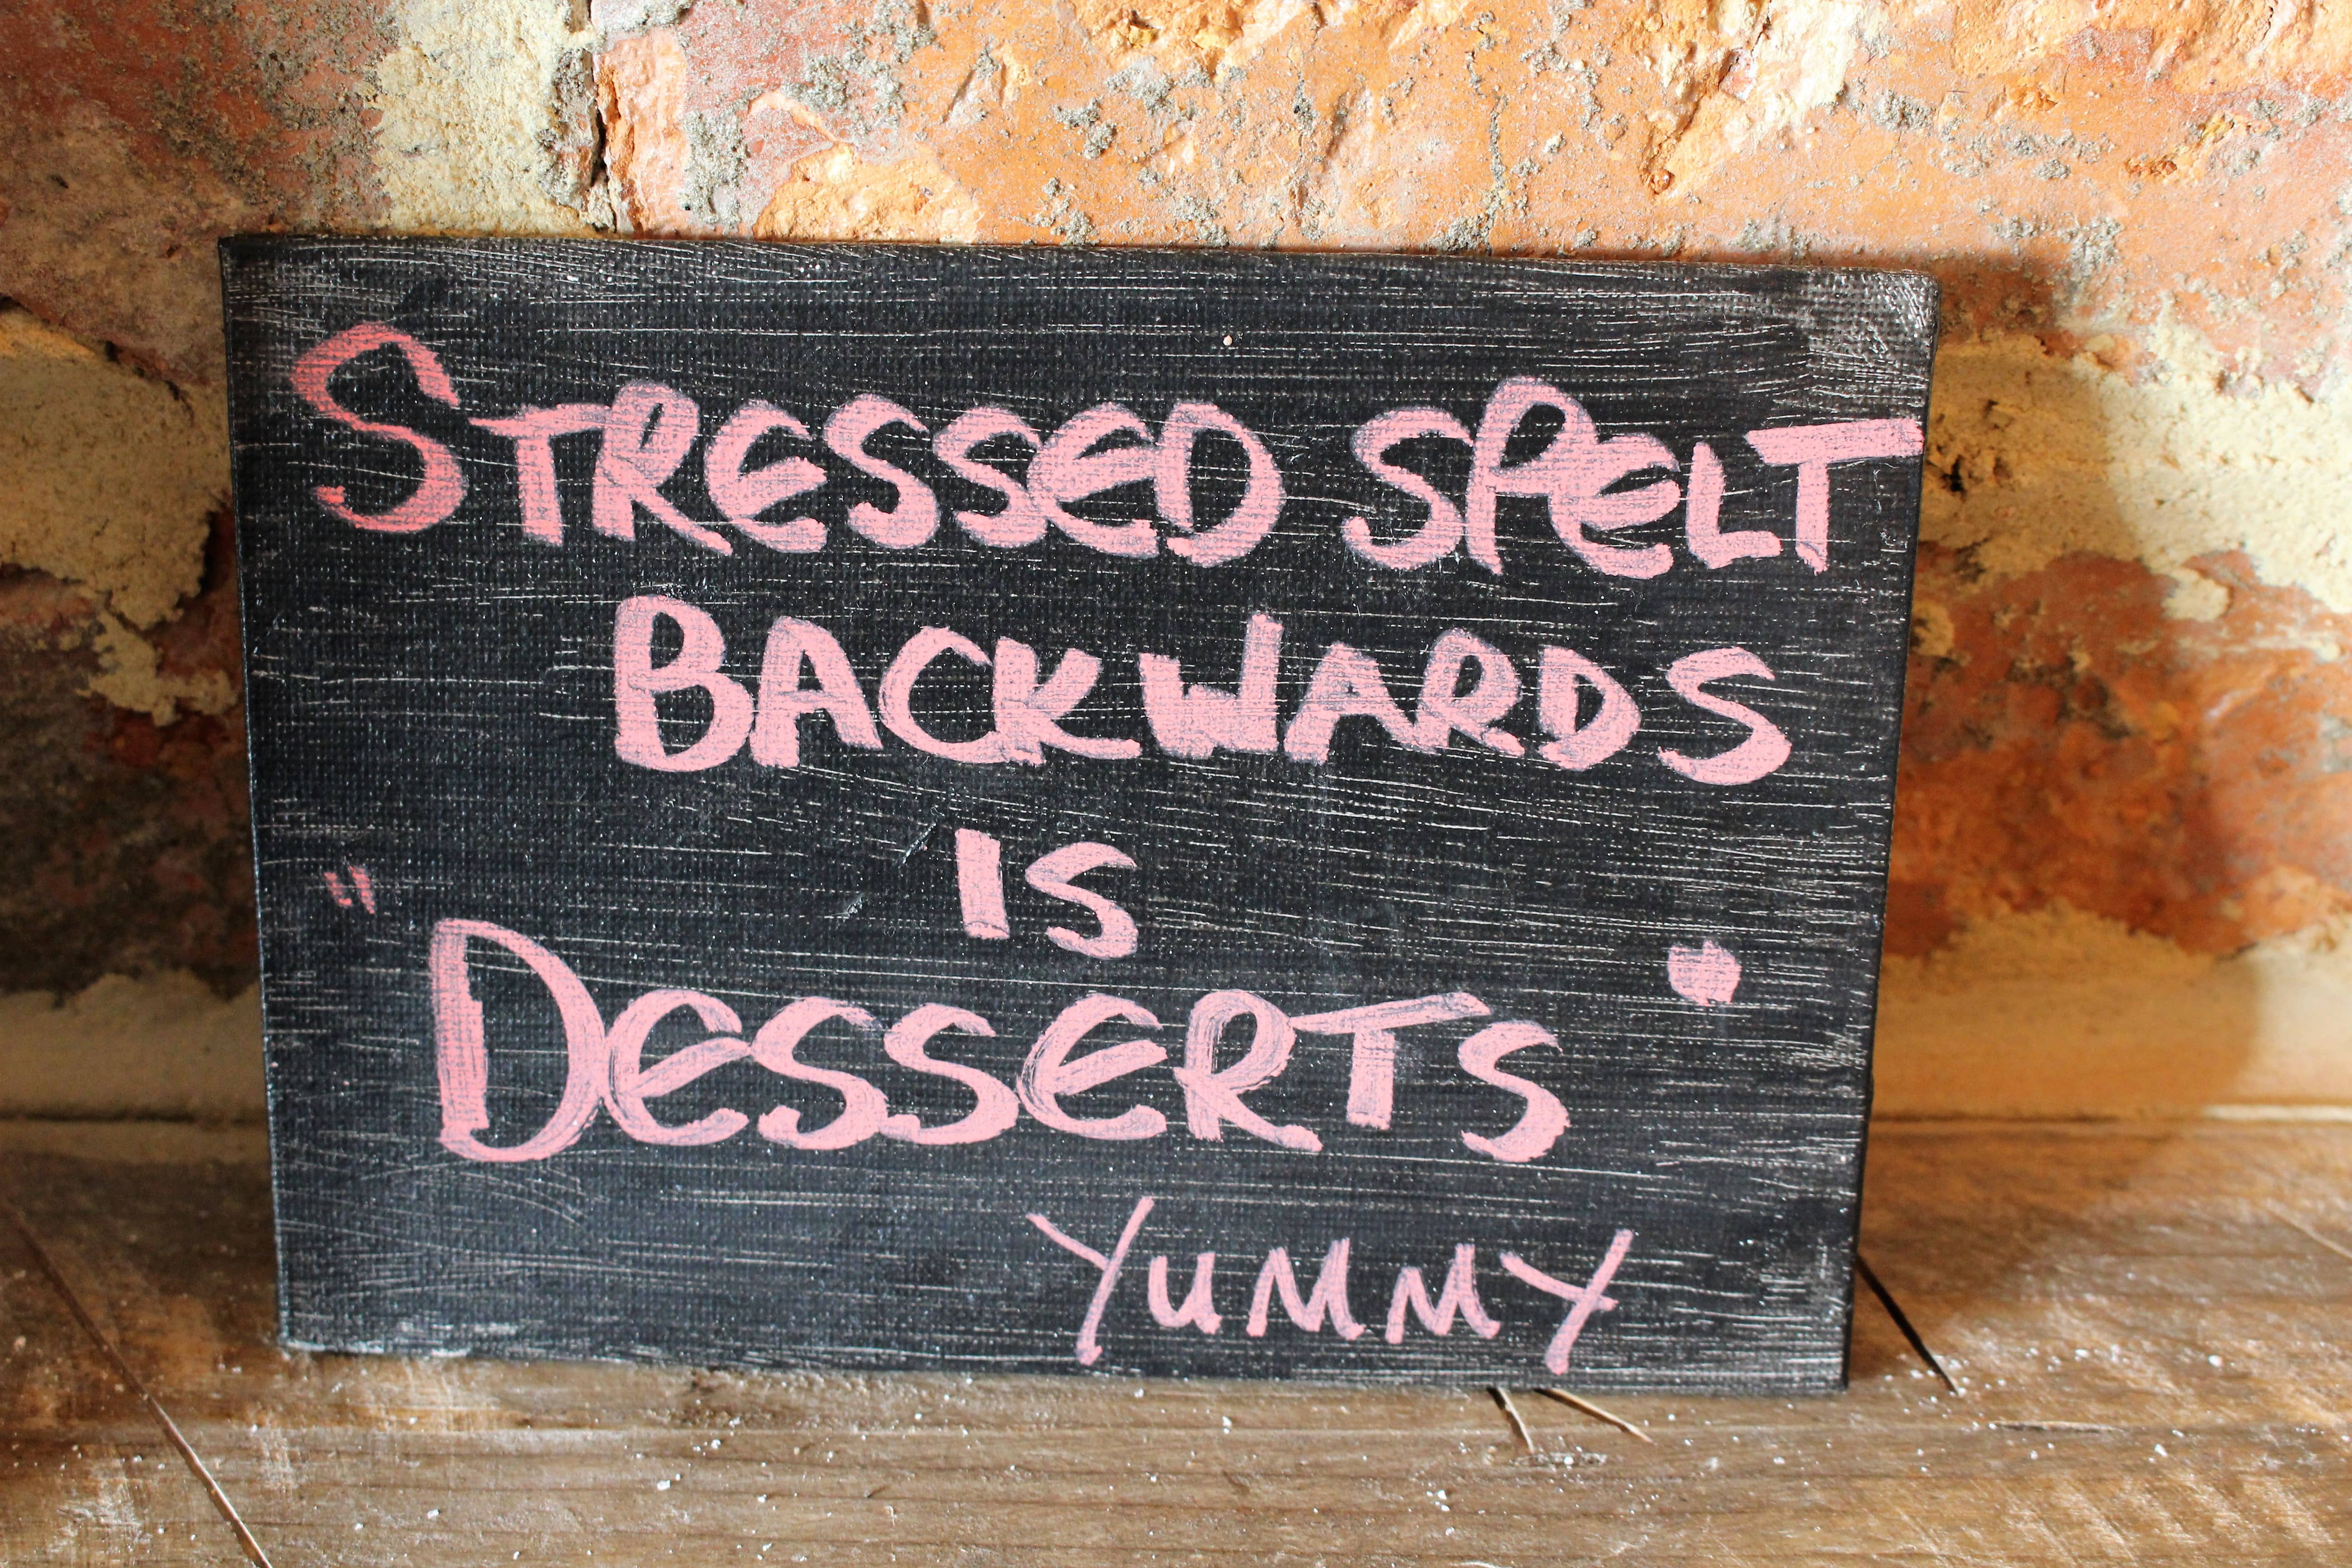 STRESSED SPELT
BACKWARDS
IS
"DESSERTS"
YUMMY